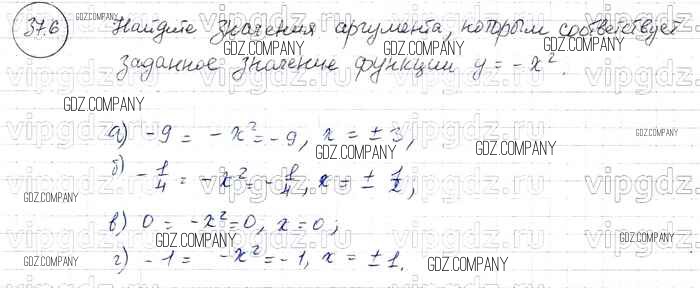 37.6 Найдите значения аргумента, которым соответствует
GDZ.COMPANY GDZ.COMPANY GDZ.COMPANY
заданное значение функции y = -x².
GDZ.COMPANY
vipgdz.ru vipgdz.ru vipgdz.ru
а) -9 = -x² = -9, x = ±3,
GDZ.COMPANY GDZ.COMPANY
б) -1/4 = -x² = -1/4, x = ± 1/2;
vipgdz.ru vipgdz.ru vipgdz.ru
GDZ.COMPANY
в) 0 = -x² = 0, x = 0;
vipgdz.ru vipgdz.ru vipgdz.ru
GDZ.COMPANY GDZ.COMPANY
г) -1 = -x² = -1, x = ±1.
GDZ.COMPANY GDZ.COMPANY